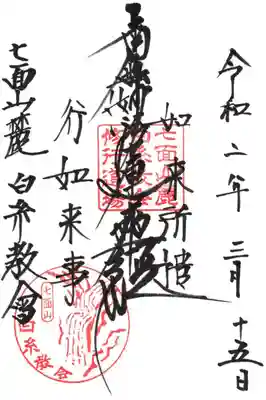 令和二年三月十五日
如来所遣
南無妙法蓮華経
行如来事
七面山麓 白糸教会
七面山麓
白糸教会
修行道場
七面山
白糸教会